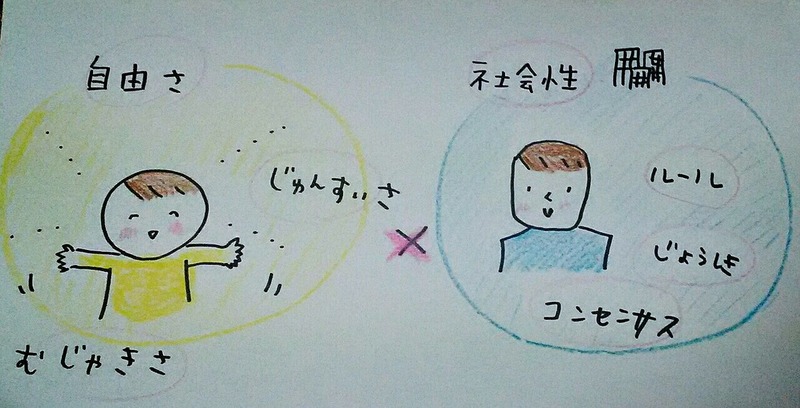 自由さ
じゅんすいさ
むじゃきさ
×
社会性
ルール
じょうしき
コンセンサス